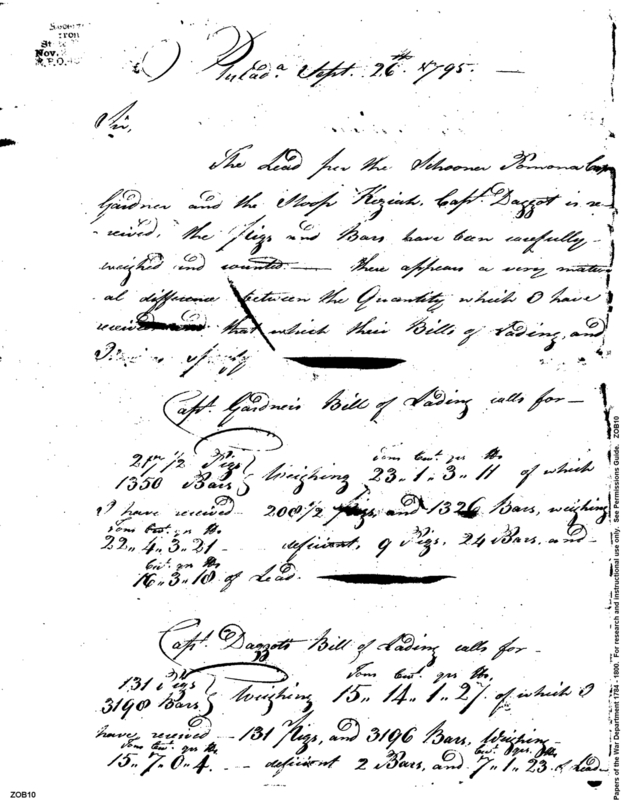 Nov.
Philad.a Sept. 26th 1795. —
Sir,
The Lead per the Schooner Pomona Cap
Gardner and the Sloop Keziah, Capt. Daggot is re-
-ceived, the Pigs and Bars have been carefully
weighed and counted. — there appears a very materi
-al difference between the Quantity which I have
received and that which their Bills of Lading, and
specify
Capt. Gardner's Bill of Lading calls for —
217 1/2 Pigs
1350 Bars } Weighing Tons Cwt. qrs lbs 23,, 1,, 3,, 11 of which
I have received 208 1/2 Pigs, and 1326 Bars, weighing
Tons Cwt. qrs lbs
22,, 4,, 3,, 21 — deficient, 9 Pigs, 24 Bars, and
Cwt. qrs lbs
16,, 3,, 18 of Lead. —
Capt. Daggots Bill of Lading calls for —
131 Pigs
3198 Bars } Weighing Tons Cwt. qrs lbs. 15,, 14,, 1,, 27. of which I
have received — 131 Pigs, and 3196 Bars, Weighing
Tons Cwt. qrs lbs Cwt. qrs. lbs
15,, 7,, 0,, 4. — deficient 2 Bars, and 7,, 1,, 23 of Lead
ZOB10
Papers of the War Department 1784 - 1800. For research and instructional use only. See Permissions Guide. ZOB10